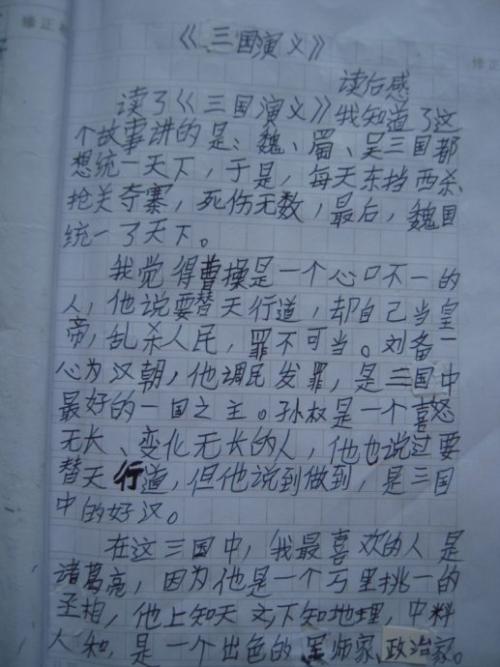 《三国演义》
读后感
读了《三国演义》我知道了这
个故事讲的是：魏、蜀、吴三国都
想统一天下，于是，每天东挡西杀、
抢关夺寨，死伤无数，最后，魏国
统一了天下。
我觉得曹操是一个心口不一的
人，他说要替天行道，却自己当皇
帝，乱杀人民，罪不可当。刘备一
心为汉朝，他调民发罪，是三国中
最好的一国之主。孙权是一个喜怒
无长、变化无长的人，他也说过要
替天行道，但他说到做到，是三国
中的好汉。
在这三国中，我最喜欢的人是
诸葛亮，因为他是一个万里挑一的
丞相，他上知天文，下知地理，中料
人和，是一个出色的军师家、政治家。
修正
修正